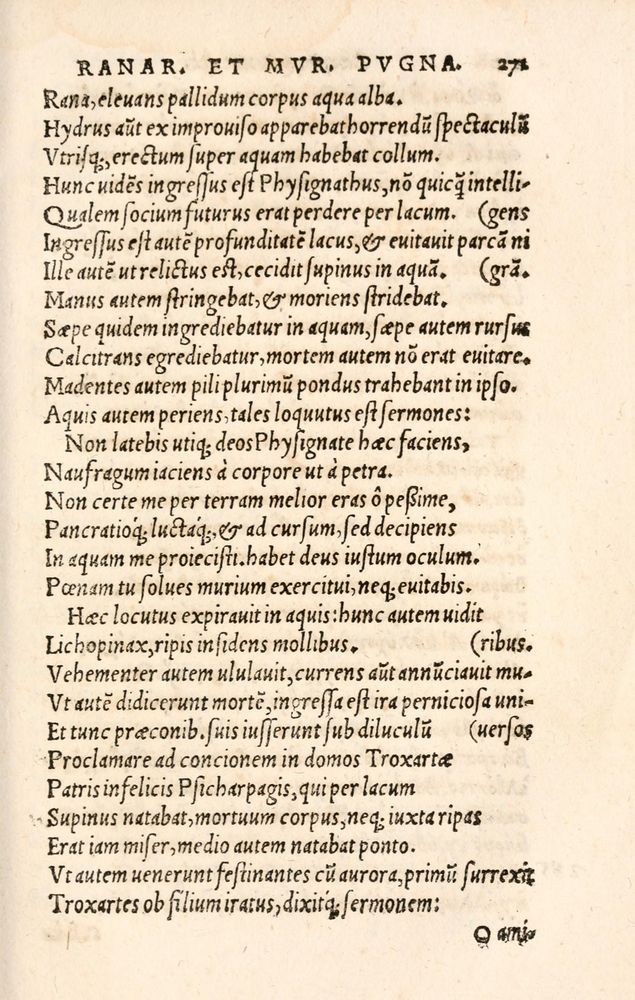 RANAR. ET MVR. PVGNA. 271
Rana, eleuans pallidum corpus aqua alba.
Hydrus aūt ex improuiſo apparebat horrendū ſpectaculū
Vtriſq;, erectum ſuper aquam habebat collum.
Hunc uidēs ingreſſus eſt Phyſignathus, nō quicq̄ intelli-
Qualem ſocium futurus erat perdere per lacum. (gens
Ingreſſus eſt autē profunditatē lacus, & euitauit parcā ni
Ille autē ut relictus eſt, cecidit ſupinus in aquā. (grā.
Manus autem ſtringebat, & moriens ſtridebat.
Sæpe quidem ingrediebatur in aquam, ſæpe autem rurſus
Calcitrans egrediebatur, mortem autem nō erat euitare.
Madentes autem pili plurimū pondus trahebant in ipſo.
Aquis autem periens, tales loquutus eſt ſermones:
Non latebis utiq; deos Phyſignate hæc faciens,
Naufragum iaciens à corpore ut à petra.
Non certe me per terram melior eras ô peßime,
Pancratioq́; luctaq́;, & ad curſum, ſed decipiens
In aquam me proieciſti. habet deus iuſtum oculum.
Pœnam tu ſolues murium exercitui, neq; euitabis.
Hæc locutus expirauit in aquis: hunc autem uidit
Lichopinax, ripis inſidens mollibus. (ribus.
Vehementer autem ululauit, currens aūt annūciauit mu-
Vt autē didicerunt mortē, ingreſſa eſt ira pernicioſa uni-
Et tunc præconib. ſuis iuſſerunt ſub diluculū (uerſos
Proclamare ad concionem in domos Troxartæ
Patris infelicis Pſicharpagis, qui per lacum
Supinus natabat, mortuum corpus, neq; iuxta ripas
Erat iam miſer, medio autem natabat ponto.
Vt autem uenerunt feſtinantes cū aurora, primū ſurrexit
Troxartes ob filium iratus, dixitq́; ſermonem:
O ami-